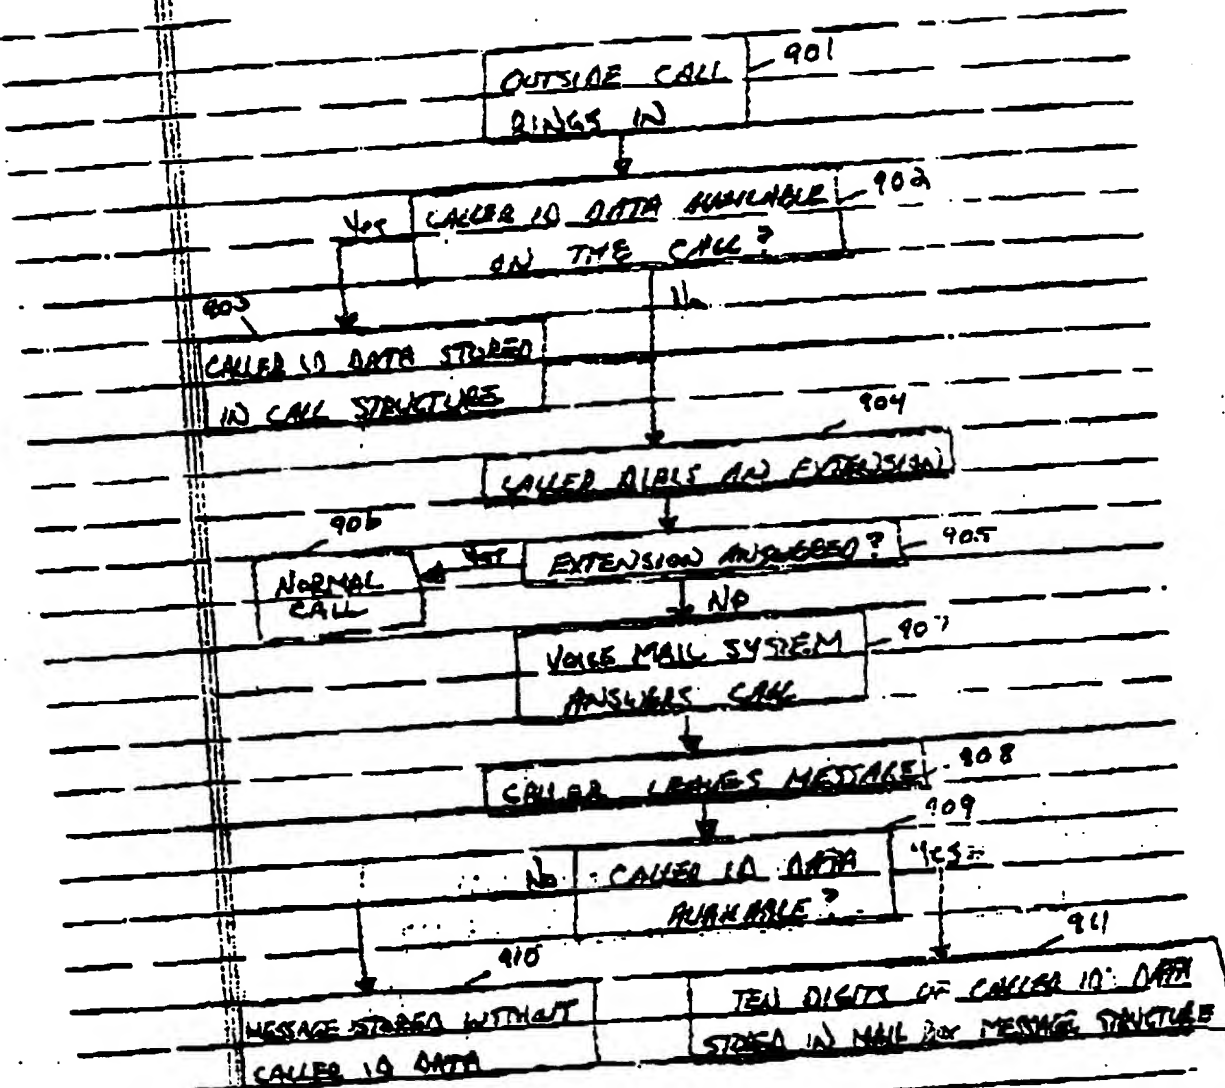 901
OUTSIDE CALL
RINGS IN
902
Yes
CALLER ID DATA AVAILABLE
ON THE CALL?
No
903
CALLER ID DATA STORED
IN CALL STRUCTURE
904
CALLER DIALS AN EXTENSION
906
905
Yes
EXTENSION ANSWERED?
NORMAL
CALL
No
907
VOICE MAIL SYSTEM
ANSWERS CALL
908
CALLER LEAVES MESSAGE
909
No
CALLER ID DATA
Yes
AVAILABLE?
910
911
MESSAGE STORED WITHOUT
CALLER ID DATA
TEN DIGITS OF CALLER ID DATA
STORED IN MAIL BOX MESSAGE STRUCTURE